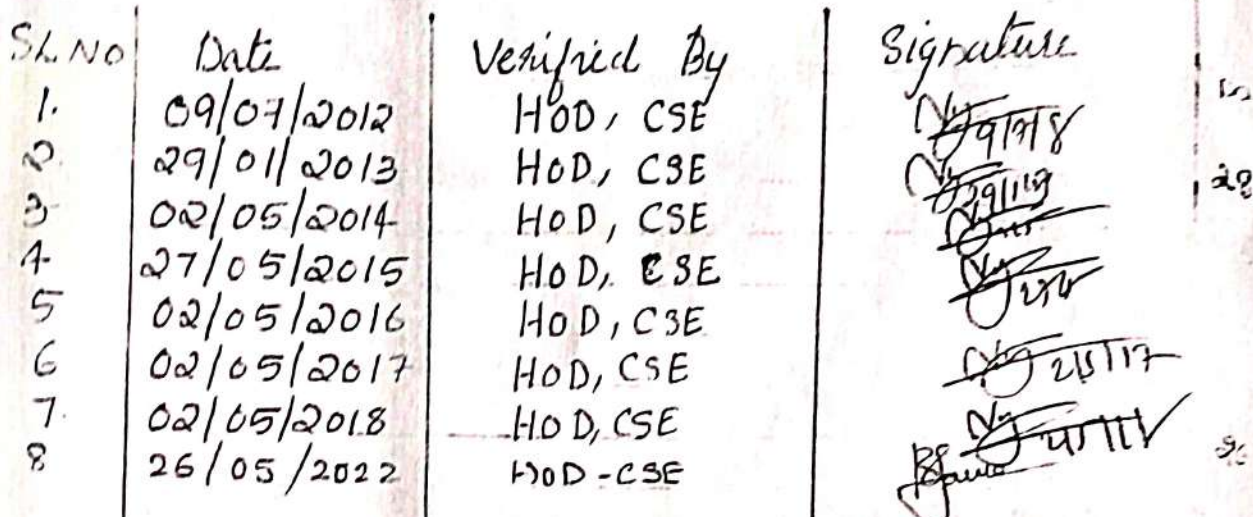 SL NO Date Verified By Signature
1. 09/07/2012 HOD, CSE
2. 29/01/2013 HOD, CSE
3 02/05/2014 HOD, CSE
4. 27/05/2015 HOD, CSE
5 02/05/2016 HOD, CSE
6 02/05/2017 HOD, CSE 2/5/17
7. 02/05/2018 HOD, CSE
8 26/05/2022 HOD-CSE